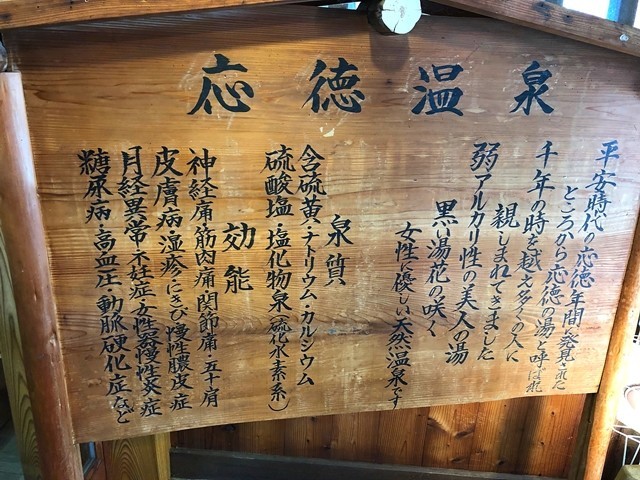 応徳温泉
平安時代の応徳年間に発見された
ところから応徳の湯と呼ばれ
千年の時を越え多くの人に
親しまれてきました
弱アルカリ性の美人の湯
黒い湯花の咲く
女性に優しい天然温泉です
泉質
含硫黄・ナトリウム・カルシウム
硫酸塩・塩化物泉(硫化水素系)
効能
神経痛・筋肉痛・関節痛・五十肩
皮膚病・湿疹・にきび・慢性膿皮症
月経異常・不妊症・女性器慢性炎症
糖尿病・高血圧・動脈硬化症など